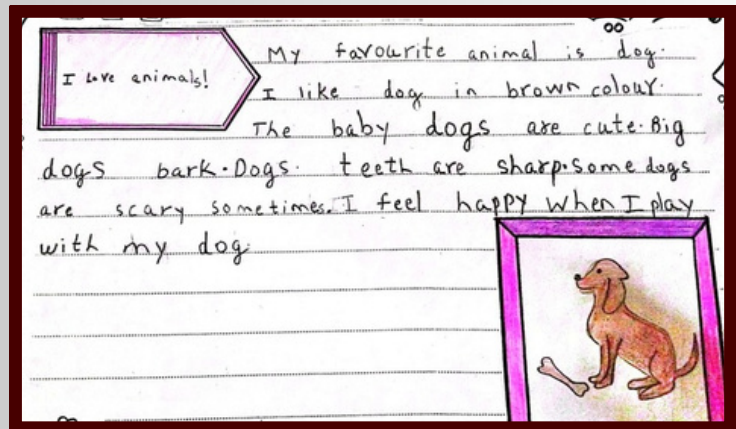 I Love animals!
My favourite animal is dog.
I like dog in brown colour.
The baby dogs are cute. Big
dogs bark. Dogs. teeth are sharp. Some dogs
are scary sometimes. I feel happy when I play
with my dog.